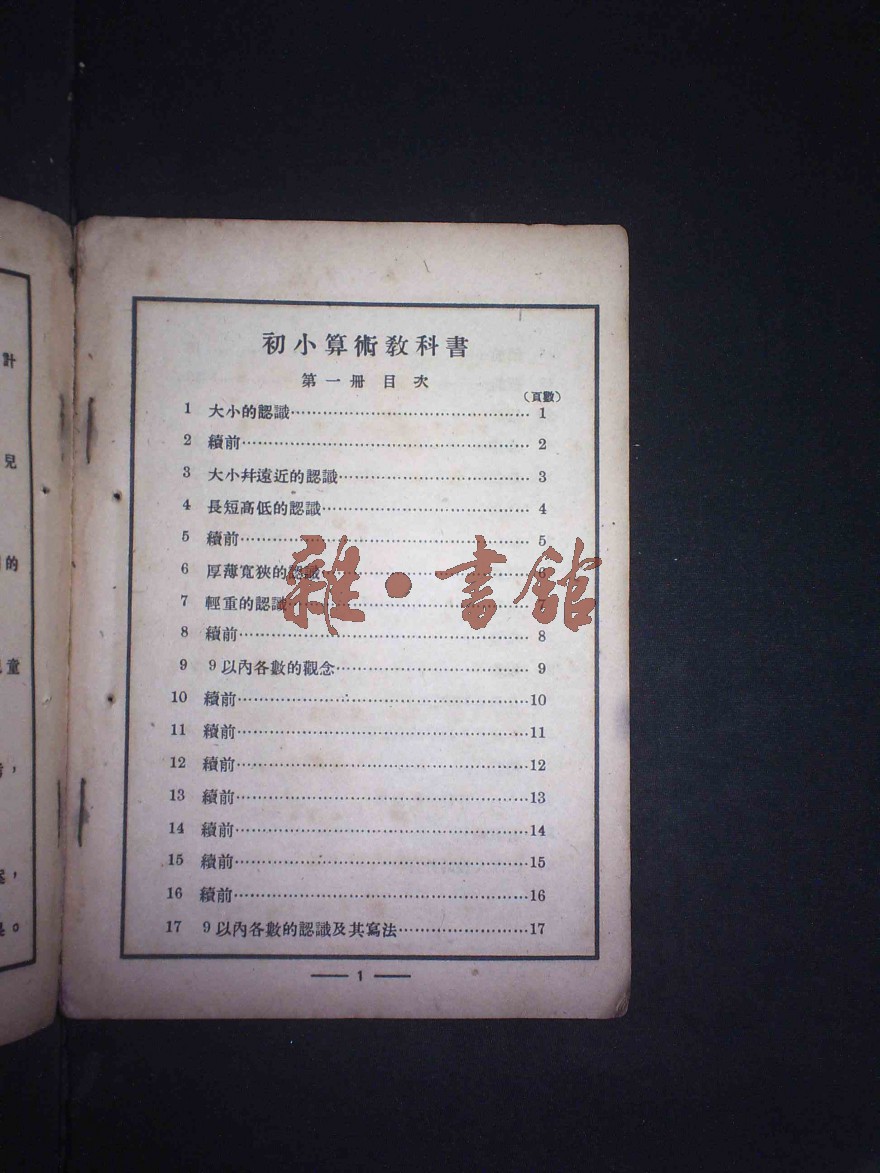 初小算術教科書
第一冊 目 次
(頁數)
1 大小的認識……………………………… 1
2 續前……………………………… 2
3 大小幷遠近的認識……………………………… 3
4 長短高低的認識……………………………… 4
5 續前……………………………… 5
6 厚薄寬狹的認識……………………………… 6
7 輕重的認識……………………………… 7
8 續前……………………………… 8
9 9以內各數的觀念……………………………… 9
10 續前………………………………10
11 續前………………………………11
12 續前………………………………12
13 續前………………………………13
14 續前………………………………14
15 續前………………………………15
16 續前………………………………16
17 9以內各數的認識及其寫法……………………17
— 1 —
雜·書館
計
兒
的
童
，
，
。